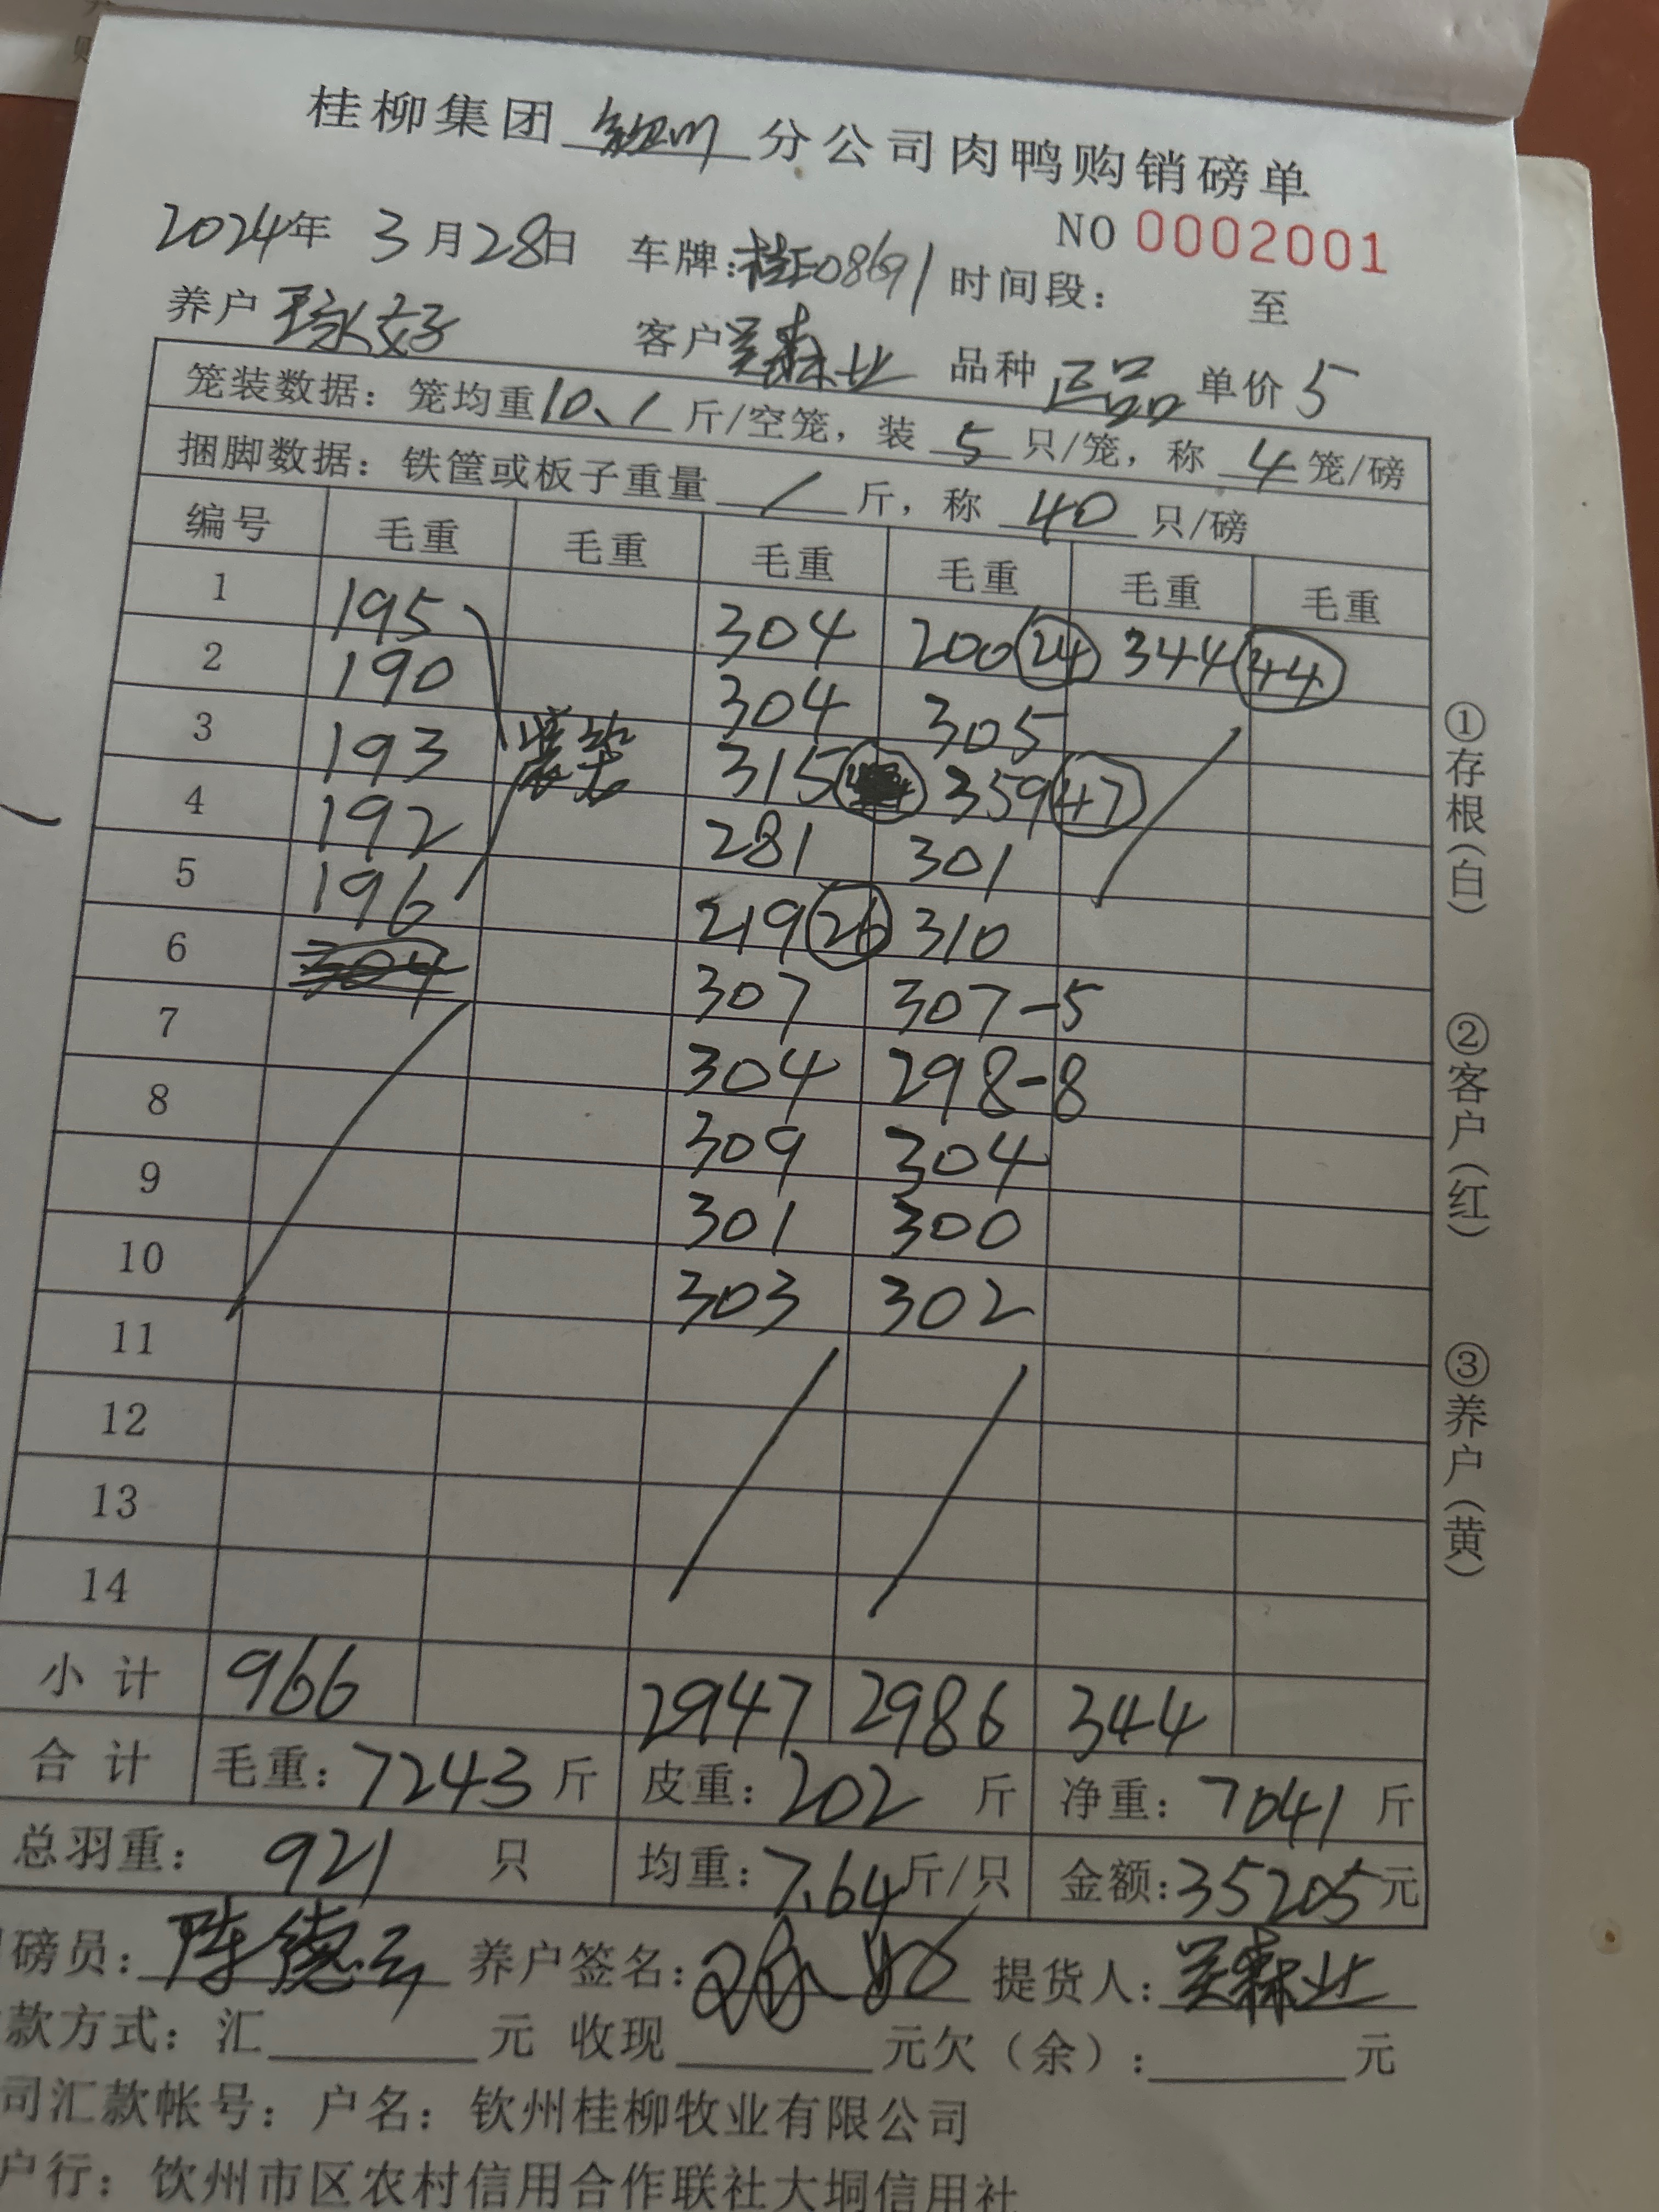 桂柳集团 钦州 分公司肉鸭购销磅单
NO 0002001
2024年 3月28日 车牌:桂E08691 时间段: 至
养户 客户 吴森业 品种 正品 单价 5
笼装数据:笼均重10、1斤/空笼,装 5 只/笼,称 4 笼/磅
捆脚数据:铁筐或板子重量 / 斤,称 40 只/磅
编号 毛重 毛重 毛重 毛重 毛重 毛重
1 195 304 200 24 344 44
2 190 304 305
3 193 315 359 47
4 192 281 301
5 196 219 26 310
6 304 307 307-5
7 304 298-8
8 309 304
9 301 300
10 303 302
11
12
13
14
小计 966 2947 2986 344
合计 毛重:7243斤 皮重:202 斤 净重:7041斤
总羽重: 921 只 均重:7.64斤/只 金额:35205元
磅员:陈德云 养户签名: 提货人:吴森业
款方式:汇 元 收现 元欠(余): 元
司汇款帐号:户名:钦州桂柳牧业有限公司
户行:钦州市区农村信用合作联社大垌信用社
①存根(白)
②客户(红)
③养户(黄)